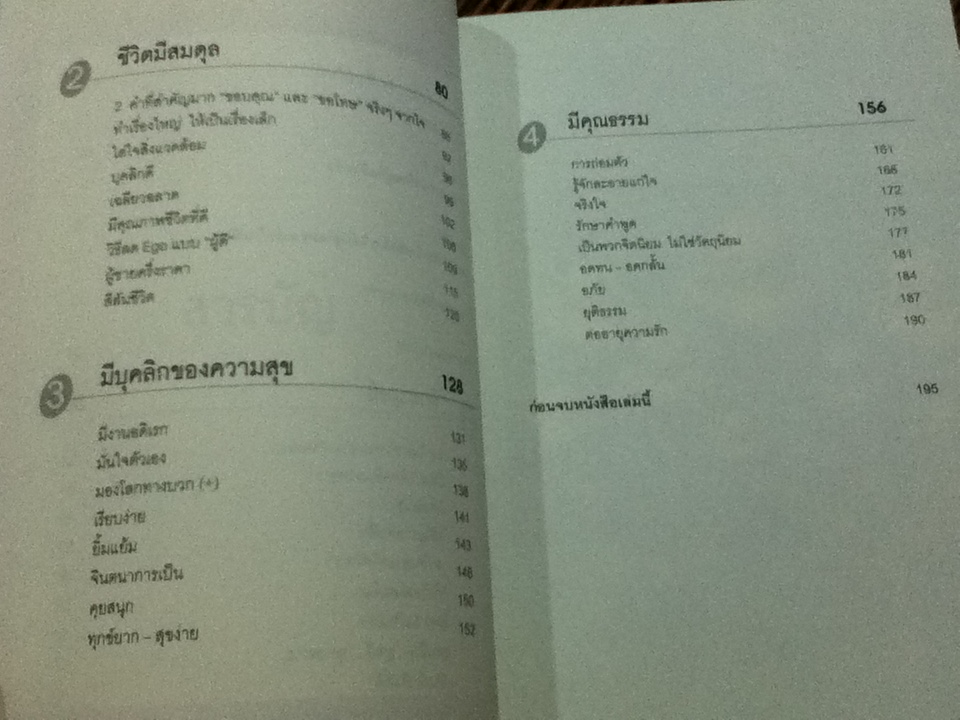 2 ชีวิตมีสมดุล 80
2 คำที่สำคัญมาก "ขอบคุณ" และ "ขอโทษ" จริงๆ จากใจ
ทำเรื่องใหญ่ ให้เป็นเรื่องเล็ก
ใส่ใจสิ่งแวดล้อม
บุคลิกดี
เฉลียวฉลาด
มีคุณภาพชีวิตที่ดี 102
วิธีลด Ego แบบ "ผู้ดี"
ผู้ชายครึ่งราคา
สีสันชีวิต
3 มีบุคลิกของความสุข 128
มีงานอดิเรก 131
มั่นใจตัวเอง
มองโลกทางบวก (+) 138
เรียบง่าย 141
ยิ้มแย้ม 143
จินตนาการเป็น
คุยสนุก 150
ทุกข์ยาก – สุขง่าย 152
4 มีคุณธรรม 156
การถ่อมตัว 161
รู้จักละอายแก่ใจ
จริงใจ 172
รักษาคำพูด 175
เป็นพวกจิตนิยม ไม่ใช่วัตถุนิยม 177
อดทน – อดกลั้น 181
อภัย 184
ยุติธรรม 187
ต่ออายุความรัก 190
ก่อนจบหนังสือเล่มนี้ 195